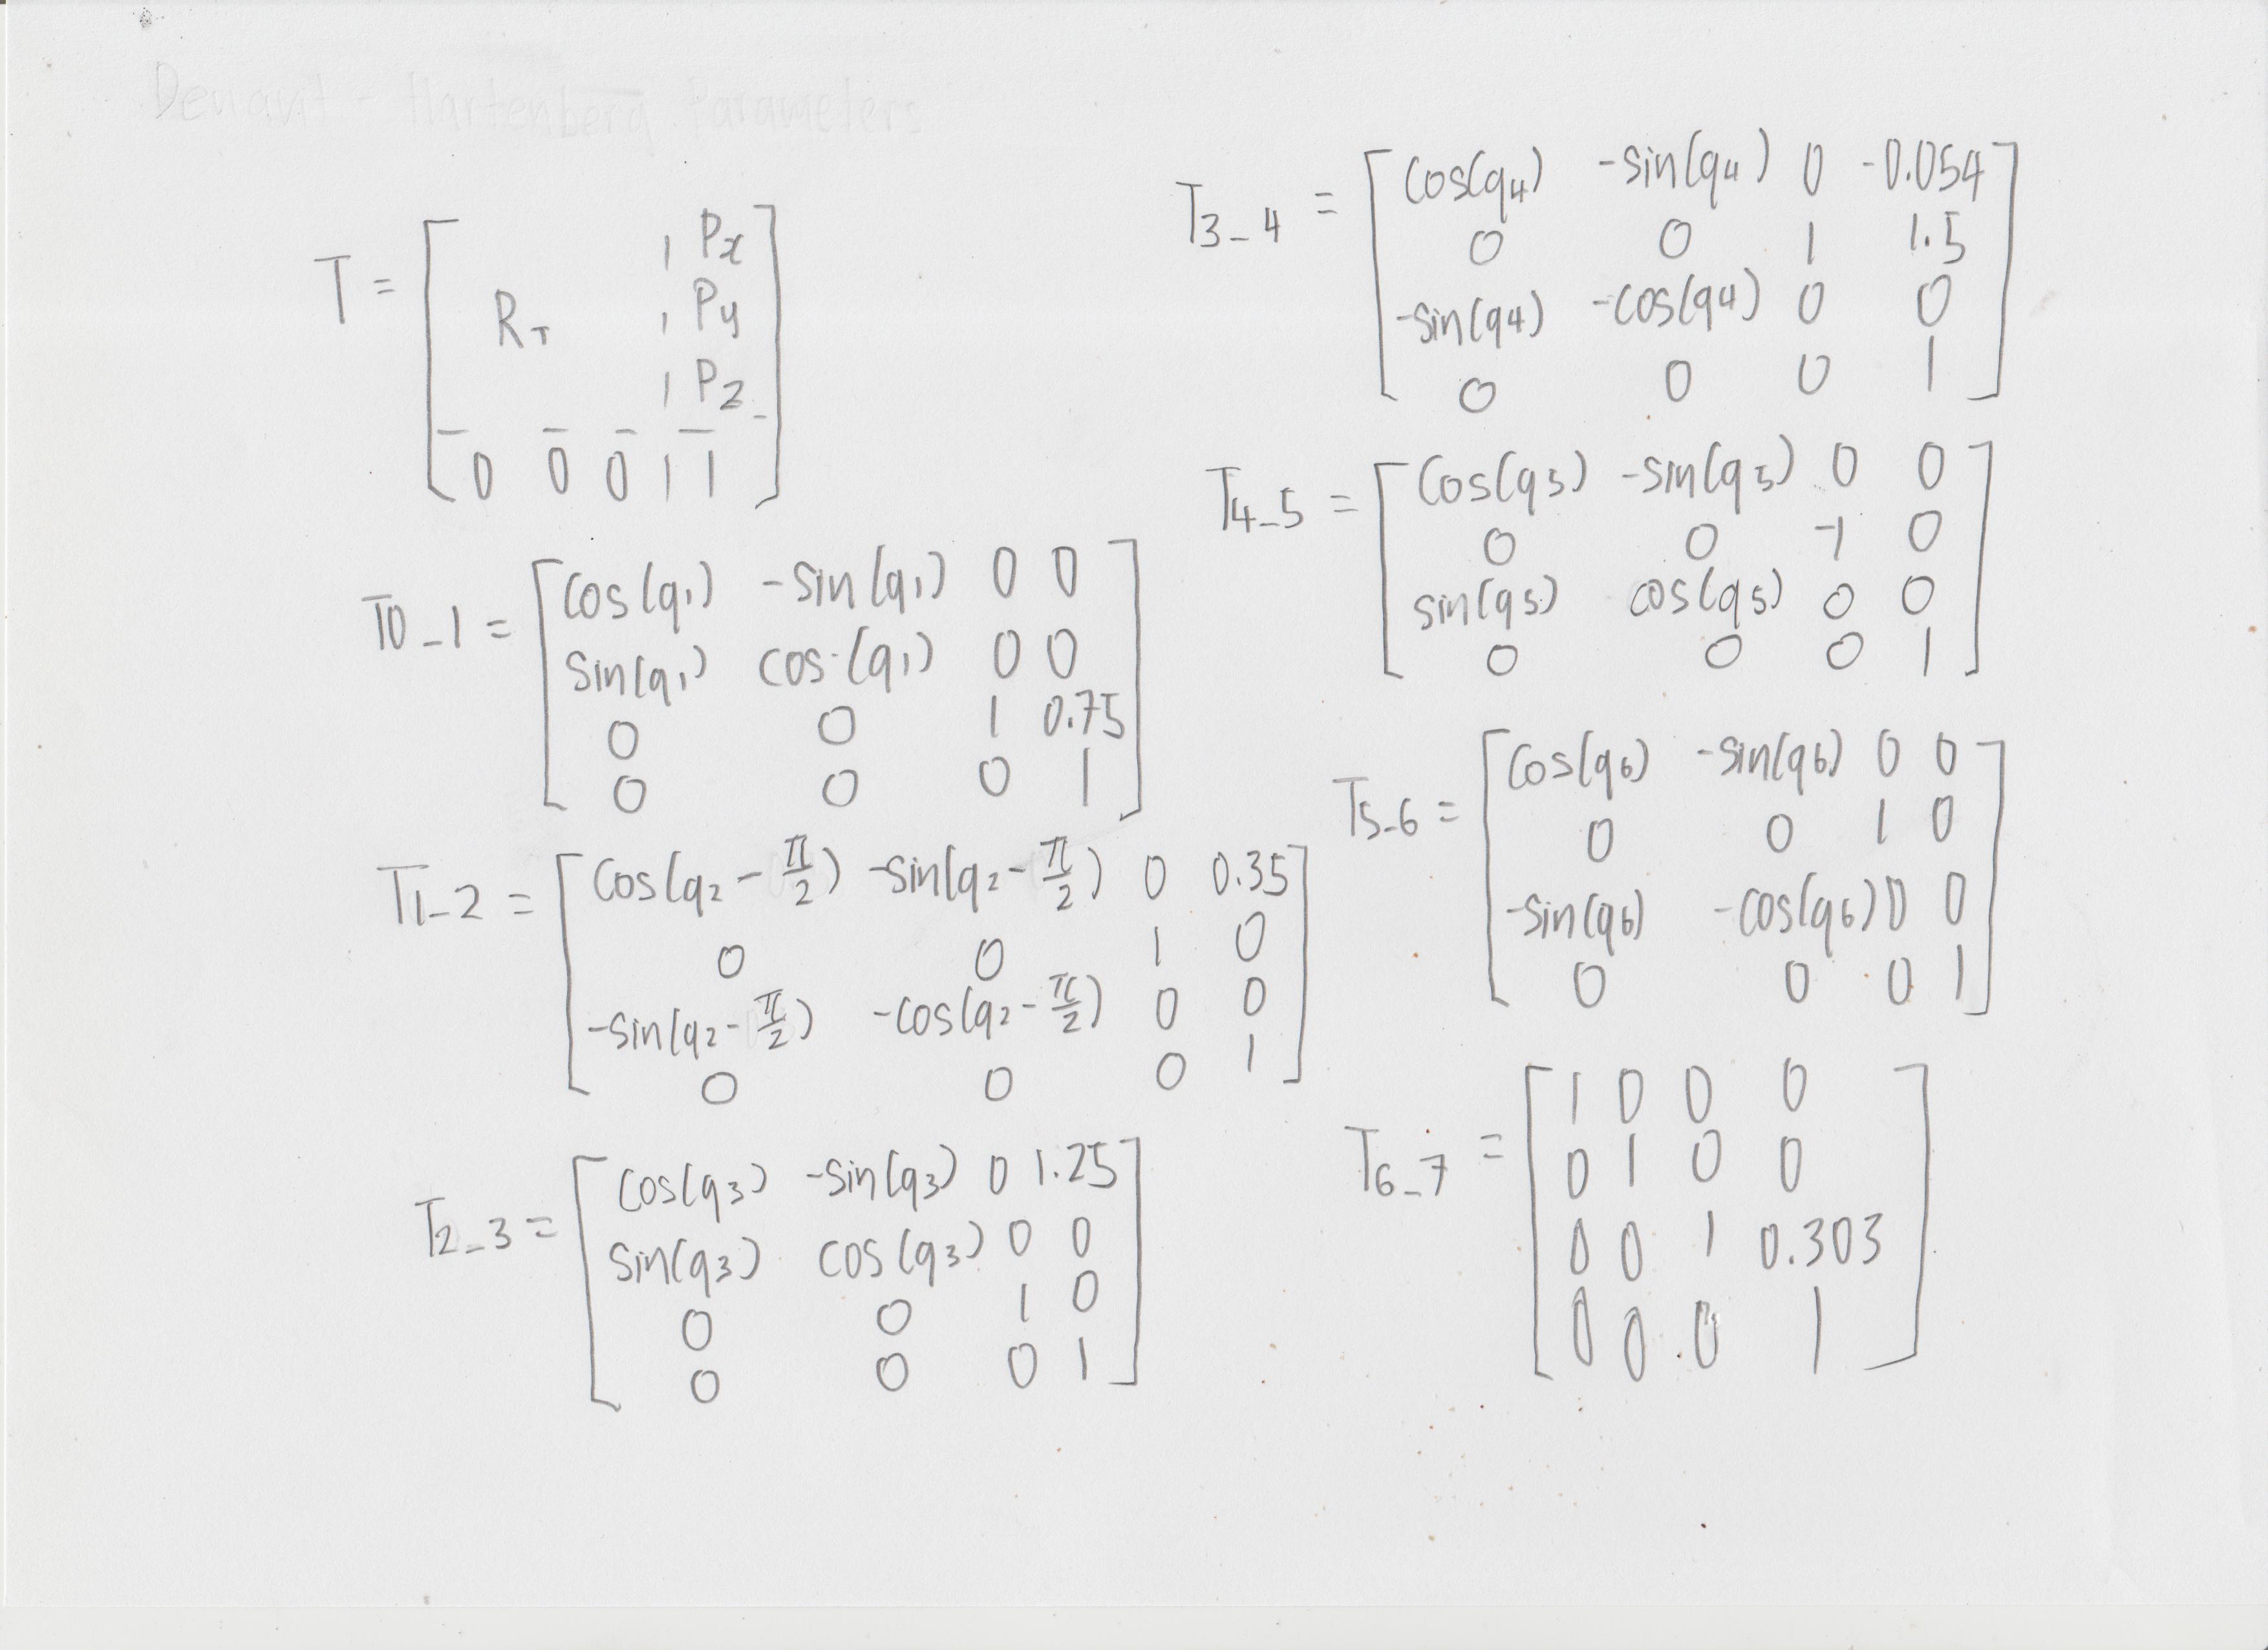 Denavit - Hartenberg Parameters
T = [ R_T | Px
| Py
| Pz
0 0 0 | 1 ]
T0_1 = [ cos(q1) -sin(q1) 0 0
sin(q1) cos(q1) 0 0
0 0 1 0.75
0 0 0 1 ]
T1_2 = [ cos(q2 - π/2) -sin(q2 - π/2) 0 0.35
0 0 1 0
-sin(q2 - π/2) -cos(q2 - π/2) 0 0
0 0 0 1 ]
T2_3 = [ cos(q3) -sin(q3) 0 1.25
sin(q3) cos(q3) 0 0
0 0 1 0
0 0 0 1 ]
T3_4 = [ cos(q4) -sin(q4) 0 -0.054
0 0 1 1.5
-sin(q4) -cos(q4) 0 0
0 0 0 1 ]
T4_5 = [ cos(q5) -sin(q5) 0 0
0 0 -1 0
sin(q5) cos(q5) 0 0
0 0 0 1 ]
T5_6 = [ cos(q6) -sin(q6) 0 0
0 0 1 0
-sin(q6) -cos(q6) 0 0
0 0 0 1 ]
T6_7 = [ 1 0 0 0
0 1 0 0
0 0 1 0.303
0 0 0 1 ]